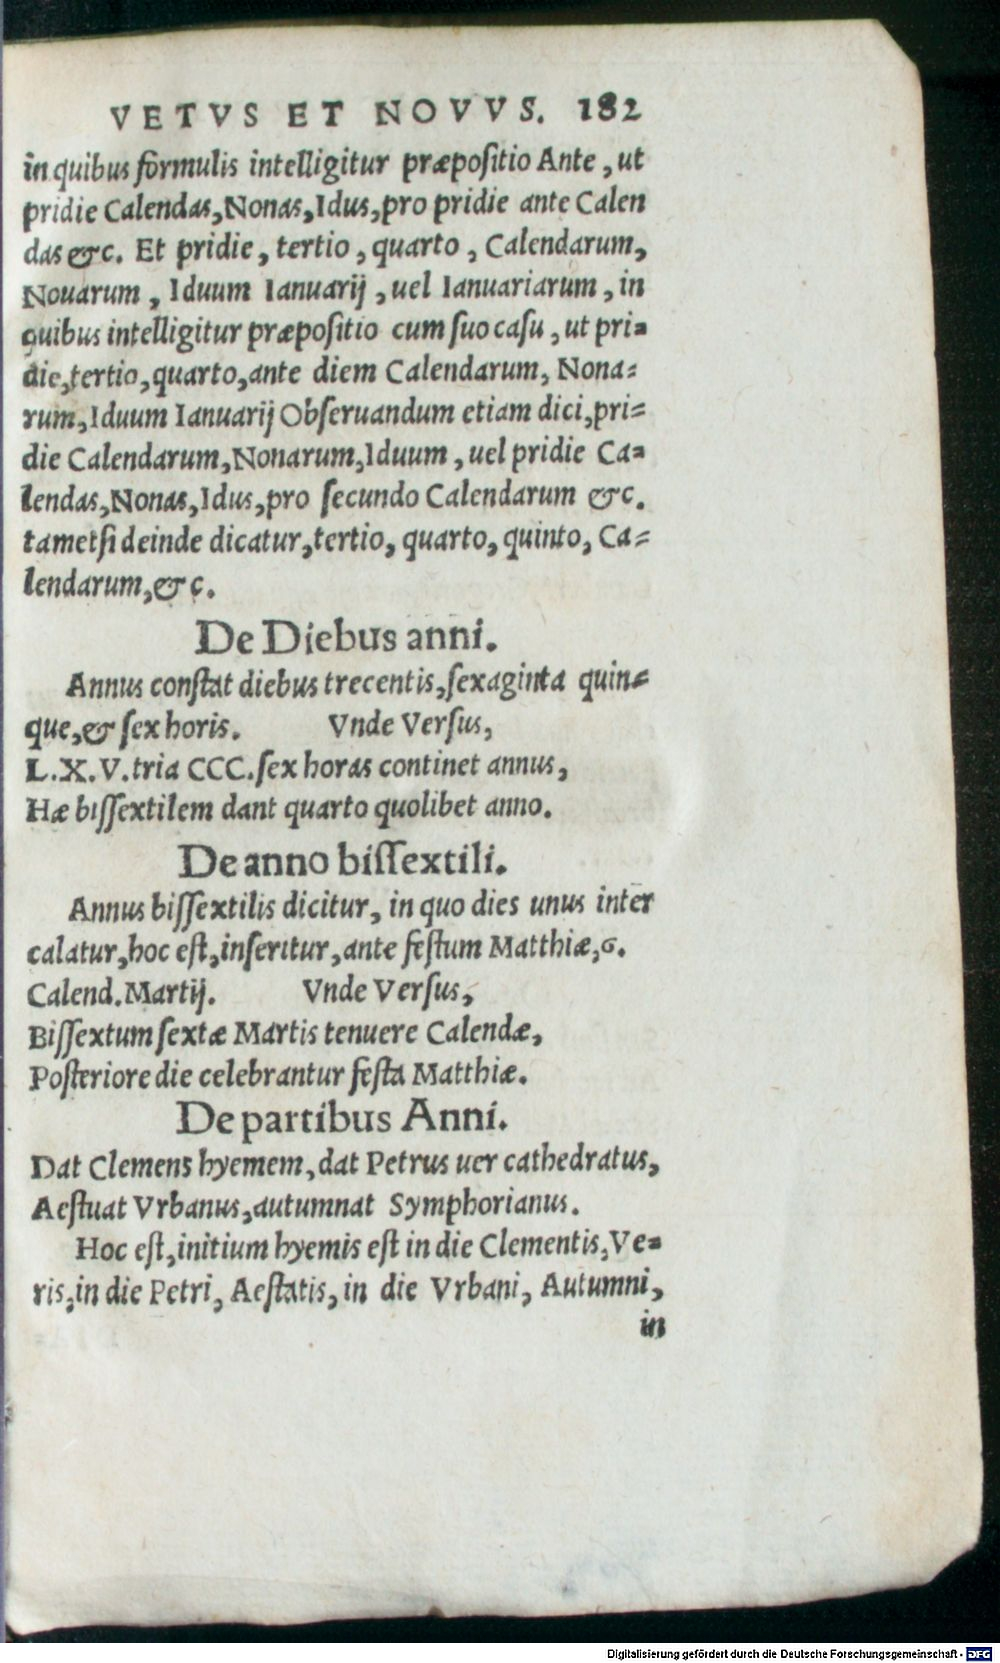 VETVS ET NOVVS. 182
in quibus formulis intelligitur præpositio Ante, ut
pridie Calendas, Nonas, Idus, pro pridie ante Calen
das &c. Et pridie, tertio, quarto, Calendarum,
Nouarum, Iduum Ianuarij, uel Ianuariarum, in
quibus intelligitur præpositio cum suo casu, ut pri=
die, tertio, quarto, ante diem Calendarum, Nona=
rum, Iduum Ianuarij Obseruandum etiam dici, pri=
die Calendarum, Nonarum, Iduum, uel pridie Ca=
lendas, Nonas, Idus, pro secundo Calendarum &c.
tametsi deinde dicatur, tertio, quarto, quinto, Ca=
lendarum, &c.
De Diebus anni.
Annus constat diebus trecentis, sexaginta quin=
que, & sex horis. Vnde Versus,
L.X.V. tria CCC. sex horas continet annus,
Hæ bissextilem dant quarto quolibet anno.
De anno bissextili.
Annus bissextilis dicitur, in quo dies unus inter
calatur, hoc est, inseritur, ante festum Matthiæ, 6.
Calend. Martij. Vnde Versus,
Bissextum sextæ Martis tenuere Calendæ,
Posteriore die celebrantur festa Matthiæ.
De partibus Anni.
Dat Clemens hyemem, dat Petrus uer cathedratus,
Aestuat Vrbanus, autumnat Symphorianus.
Hoc est, initium hyemis est in die Clementis, Ve=
ris, in die Petri, Aestatis, in die Vrbani, Autumni,
in
Digitalisierung gefördert durch die Deutsche Forschungsgemeinschaft - DFG